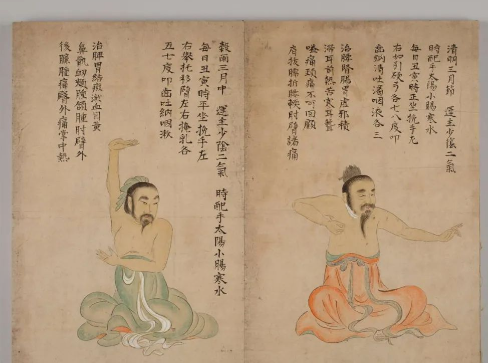 清明三月節 運主少陰二氣
時配手太陽小腸寒水
每日丑寅時正坐換手左
右如引硬弓各七八度叩
齒納清吐濁咽液各三
治腰腎腸胃虛邪積
滯耳前熱苦寒耳聾
嗌痛頸痛不可回顧
肩拔臑折腰軟肘臂諸痛
穀雨三月中 運主少陰二氣 時配手太陽小腸寒水
每日丑寅時平坐換手左
右舉托移臂左右掩乳各
五七度叩齒吐納咽漱
治脾胃結瘕瘀血目黃
鼻鼽衄頰腫頷腫肘臂外
後臁腫痛臂外痛掌中熱